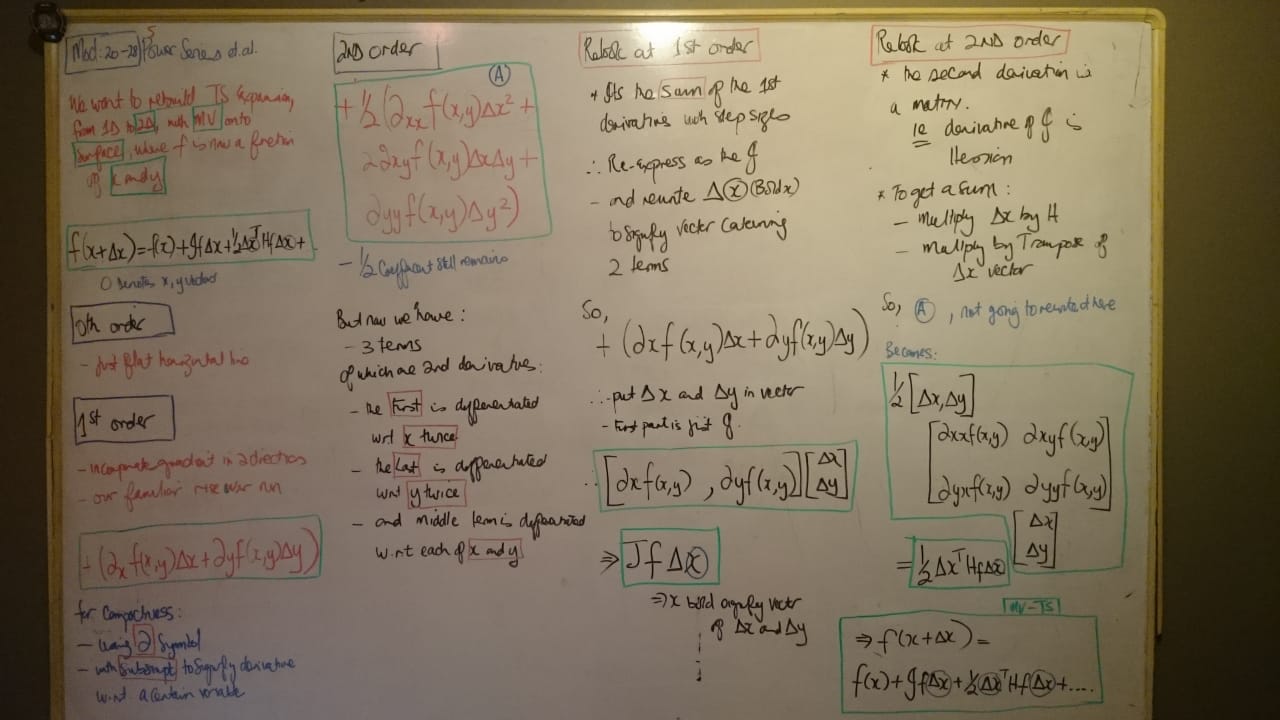 Mod: 20-28) Power Series et.al.
5
We want to rebuild TS Expansion,
from 1D to 2D, with MV onto
surface, where f is now a function
of x and y
f(x+Δx)=f(x)+JfΔx+½Δx^T HfΔx+
0 denotes x, y vectors
0th order
- Just flat horizontal line
1st order
- incorporate gradient in 2 directions
- our familiar rise over run
+ (∂x f(x,y)Δx + ∂y f(x,y)Δy)
for Compactness:
- using ∂ symbol
- with subscript to signify derivative
w.r.t a certain variable
2ND order
A
+ ½(∂xx f(x,y)Δx² +
2∂xy f(x,y)ΔxΔy +
∂yy f(x,y)Δy²)
- ½ Coefficient still remains
But now we have:
- 3 terms
of which are 2nd derivatives:
- the first is differentiated
wrt x twice
- the last is differentiated
wrt y twice
- and middle term is differentiated
w.r.t each of x and y
Relook at 1st order
* Its the sum of the 1st
derivatives with step sizes
∴ Re-express as the J
- and rewrite Δx (Bold x)
to signify vector containing
2 terms
So,
+ (∂x f(x,y)Δx + ∂y f(x,y)Δy)
∴ put Δx and Δy in vector
- First part is just J.
∴ [∂x f(x,y) , ∂y f(x,y)] [Δx
Δy]
⇒ Jf Δx
⇒ x bold signify vector
of Δx and Δy
Relook at 2ND order
* the second derivation is
a matrix.
ie derivative of J is
Hessian
* To get a sum:
- multiply Δx by H
- multiply by Transpose of
Δx vector
So, A , not going to rewrite here
Becomes:
½ [Δx, Δy]
[∂xx f(x,y) ∂xy f(x,y)
∂yx f(x,y) ∂yy f(x,y)]
[Δx
Δy]
= ½ Δx^T Hf Δx
MV-TS
⇒ f(x+Δx) =
f(x)+JfΔx+½Δx^T HfΔx+....